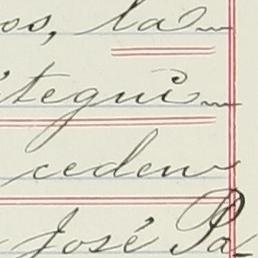 os, la
tegui
ceden
José Pa-